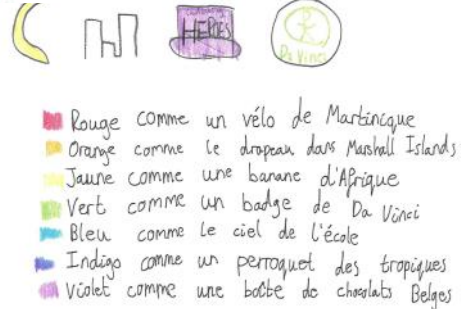 HEROES
Da Vinci
Rouge comme un vélo de Martinicque
Orange comme le drapeau dans Marshall Islands
Jaune comme une banane d'Afrique
Vert comme un badge de Da Vinci
Bleu comme le ciel de l'école
Indigo comme un perroquet des tropiques
Violet comme une boîte de chocolats Belges